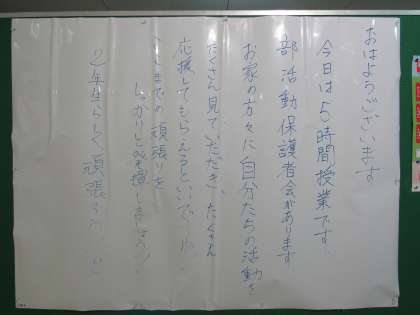 おはようございます
今日は5時間授業です。
部活動保護者会があります
お家の方々に自分たちの活動を
たくさん見ていただき、たくさん
応援してもらえるといいですね
ここまでの頑張りを
しっかりと発揮しましょう!
2年生らしく頑張ろう